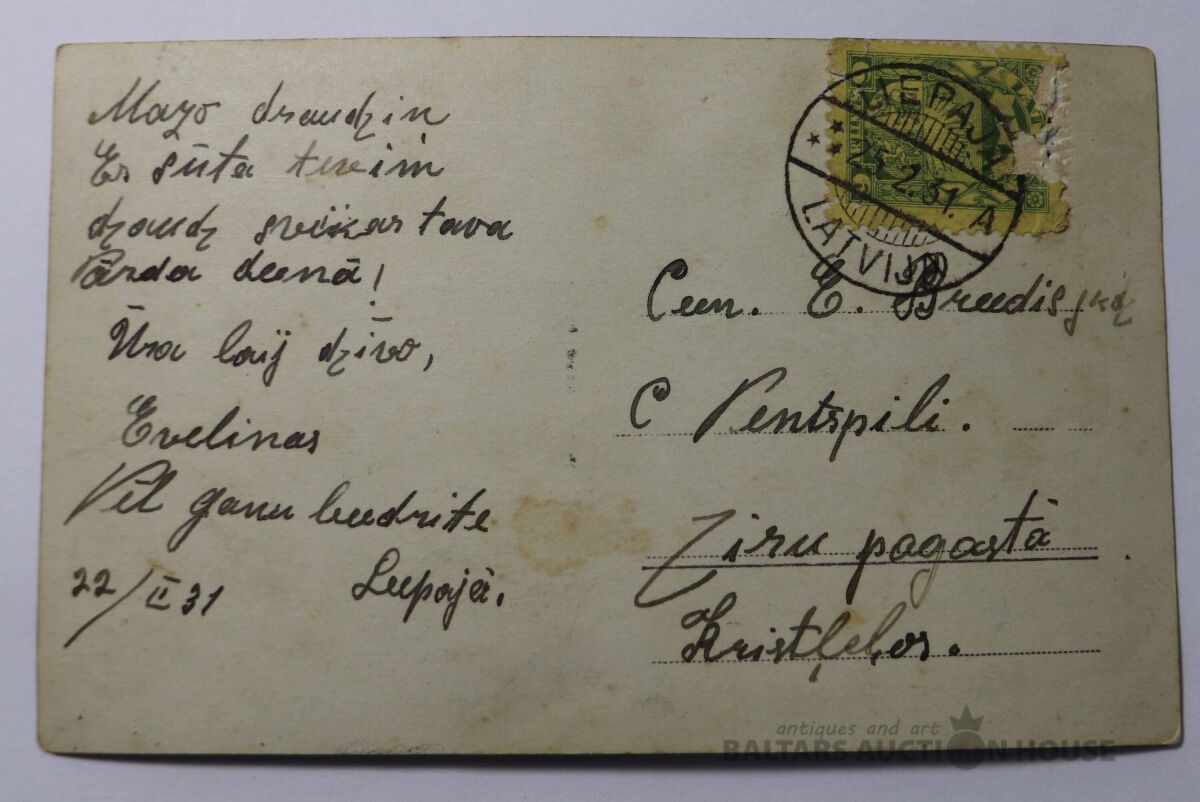 Mazo draudzin
Es sūta tevim
dzaudz sveikas tava
Vārda deenā!
Ūra laij dzīvo,
Evelinas
Vēl ganu beedrite
22/II 31 Leepajā.
LIEPAJA
24.2.31. A
LATVIJA
Ceen. E. Breedis
C Ventspili.
Ziru pagastā
Kristļeļos.
antiques and art
BALTARS AUCTION HOUSE